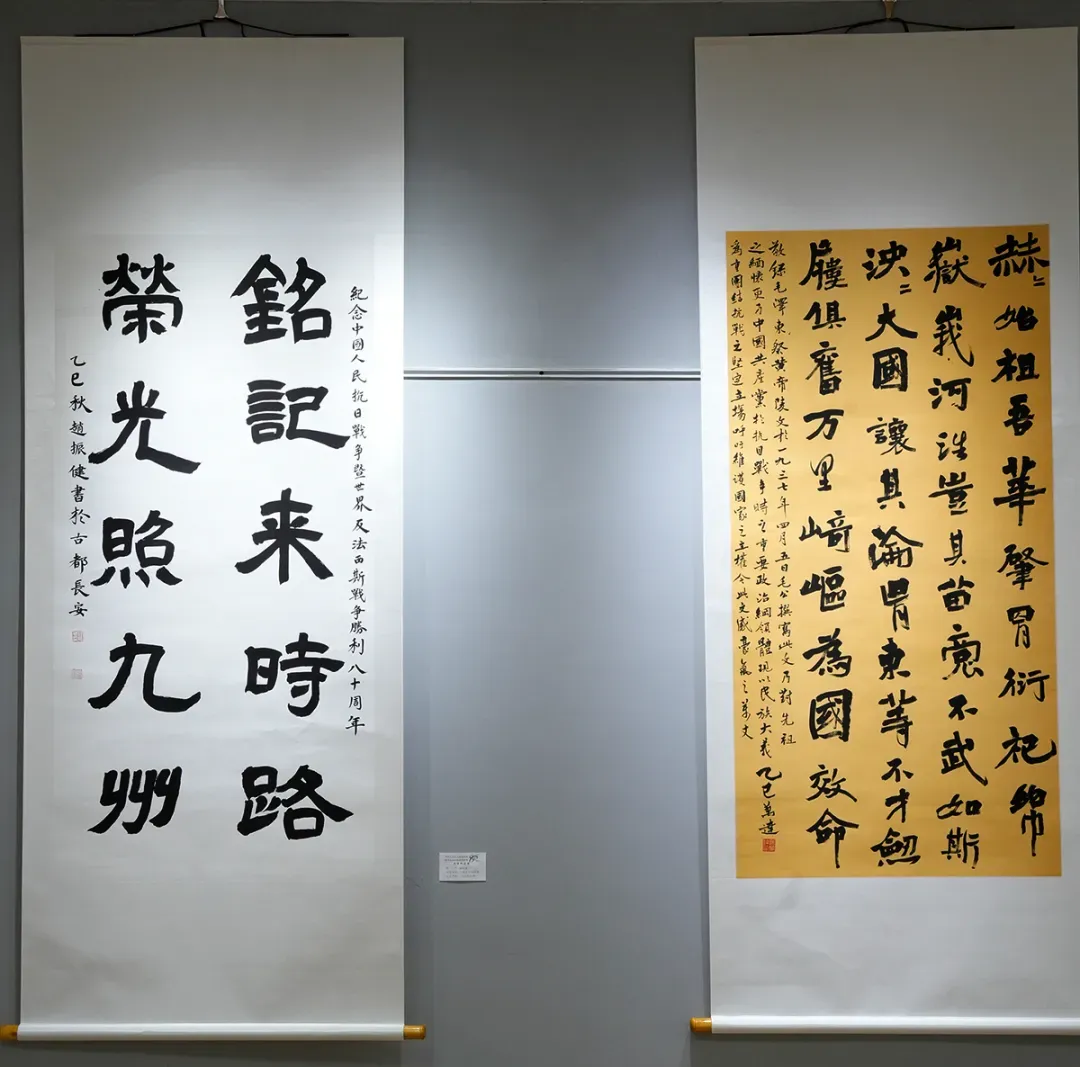 紀念中國人民抗日戰争暨世界反法西斯戰争勝利八十周年
銘記来時路
榮光照九州
乙巳秋趙振健書於古都長安
赫〻始祖吾華肇胄衍祀綿
嶽峩河浒豈其苗裔不武如斯
泱〻大國讓其淪胥東等不才劒
屨俱奮万里崎嶇為國效命
敬録毛澤東祭黄帝陵文於一九三七年四月五日毛公撰寫此文乃對先祖
之緬懷更乃中國共産黨於抗日戰争時之重要政治綱領體現以民族大義
為中國结抗戰之堅定立場呼吁維護國家之主權今此文感豪氣之文
乙巳萬達